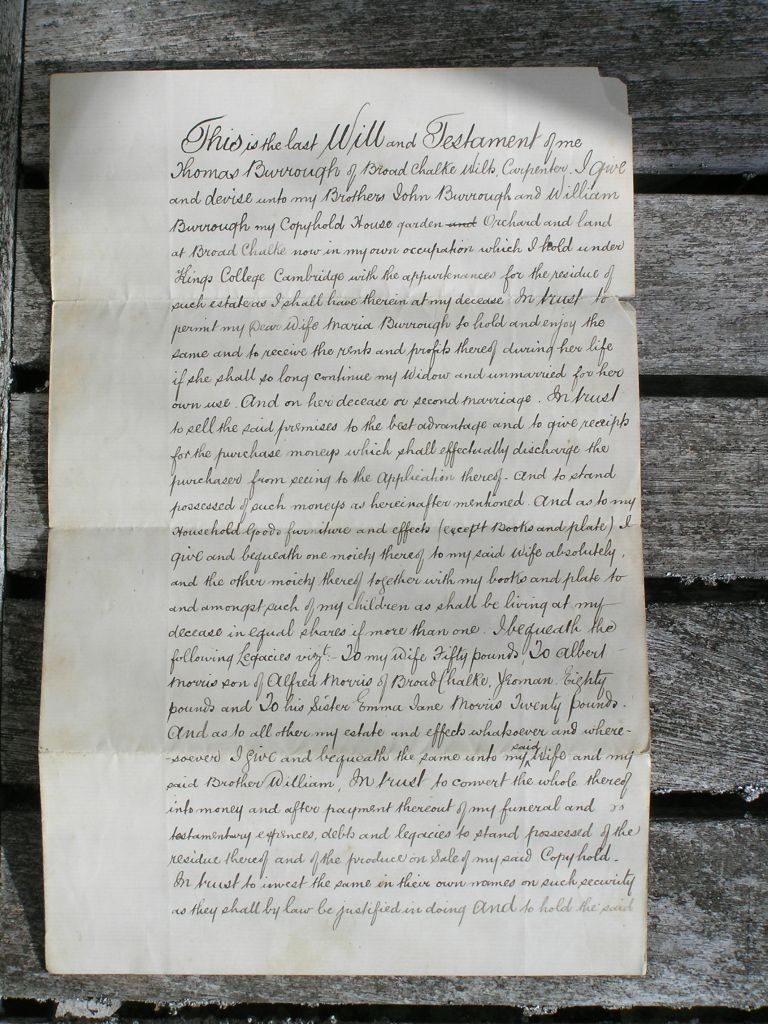 This is the last Will and Testament of me
Thomas Burrough of Broad Chalke Wilts, Carpenter. I give
and devise unto my Brothers John Burrough and William
Burrough my Copyhold House garden and Orchard and land
at Broad Chalke now in my own occupation which I hold under
Kings College Cambridge with the appurtenances for the residue of
such estate as I shall have therein at my decease In trust to
permit my Dear Wife Maria Burrough to hold and enjoy the
same and to receive the rents and profits thereof during her life
if she shall so long continue my Widow and unmarried for her
own use. And on her decease or second marriage. In trust
to sell the said premises to the best advantage and to give receipts
for the purchase moneys which shall effectually discharge the
purchaser from seeing to the Application thereof. And to stand
possessed of such moneys as hereinafter mentioned. And as to my
Household Goods furniture and effects (except Books and plate) I
give and bequeath one moiety thereof to my said Wife absolutely,
and the other moiety thereof together with my books and plate to
and amongst such of my children as shall be living at my
decease in equal shares if more than one. I bequeath the
following Legacies vizt:- To my Wife Fifty pounds, To Albert
Morris son of Alfred Morris of Broad Chalke, Yeoman. Eighty
pounds and To his Sister Emma Jane Morris Twenty pounds.
And as to all other my estate and effects whatsoever and where-
-soever I give and bequeath the same unto my said Wife and my
said Brother William, In trust to convert the whole thereof
into money and after payment thereout of my funeral and
testamentary expences, debts and legacies to stand possessed of the
residue thereof and of the produce on Sale of my said Copyhold.
In trust to invest the same in their own names on such security
as they shall by law be justified in doing And to hold the said